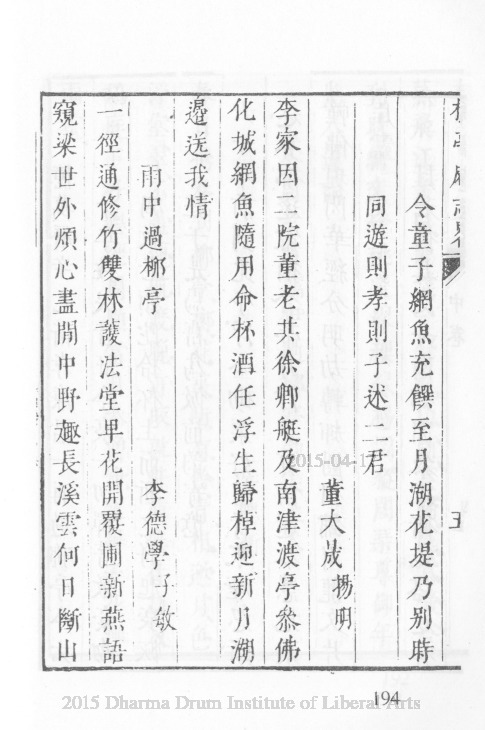 令童子網魚充饌至月湖花堤乃別時
同遊則孝則子述二君
董大晟 揚明
李家因二院董老共徐卿艇及南津渡亭叅佛
化城網魚隨用命杯酒任浮生歸棹迎新月湖
邊送我情
雨中過栁亭 李德學 子敏
一徑通修竹雙林護法堂早花開覆圃新燕語
窺梁世外煩心盡閒中野趣長溪雲何日斷山
2015-04-17
194
2015 Dharma Drum Institute of Liberal Arts